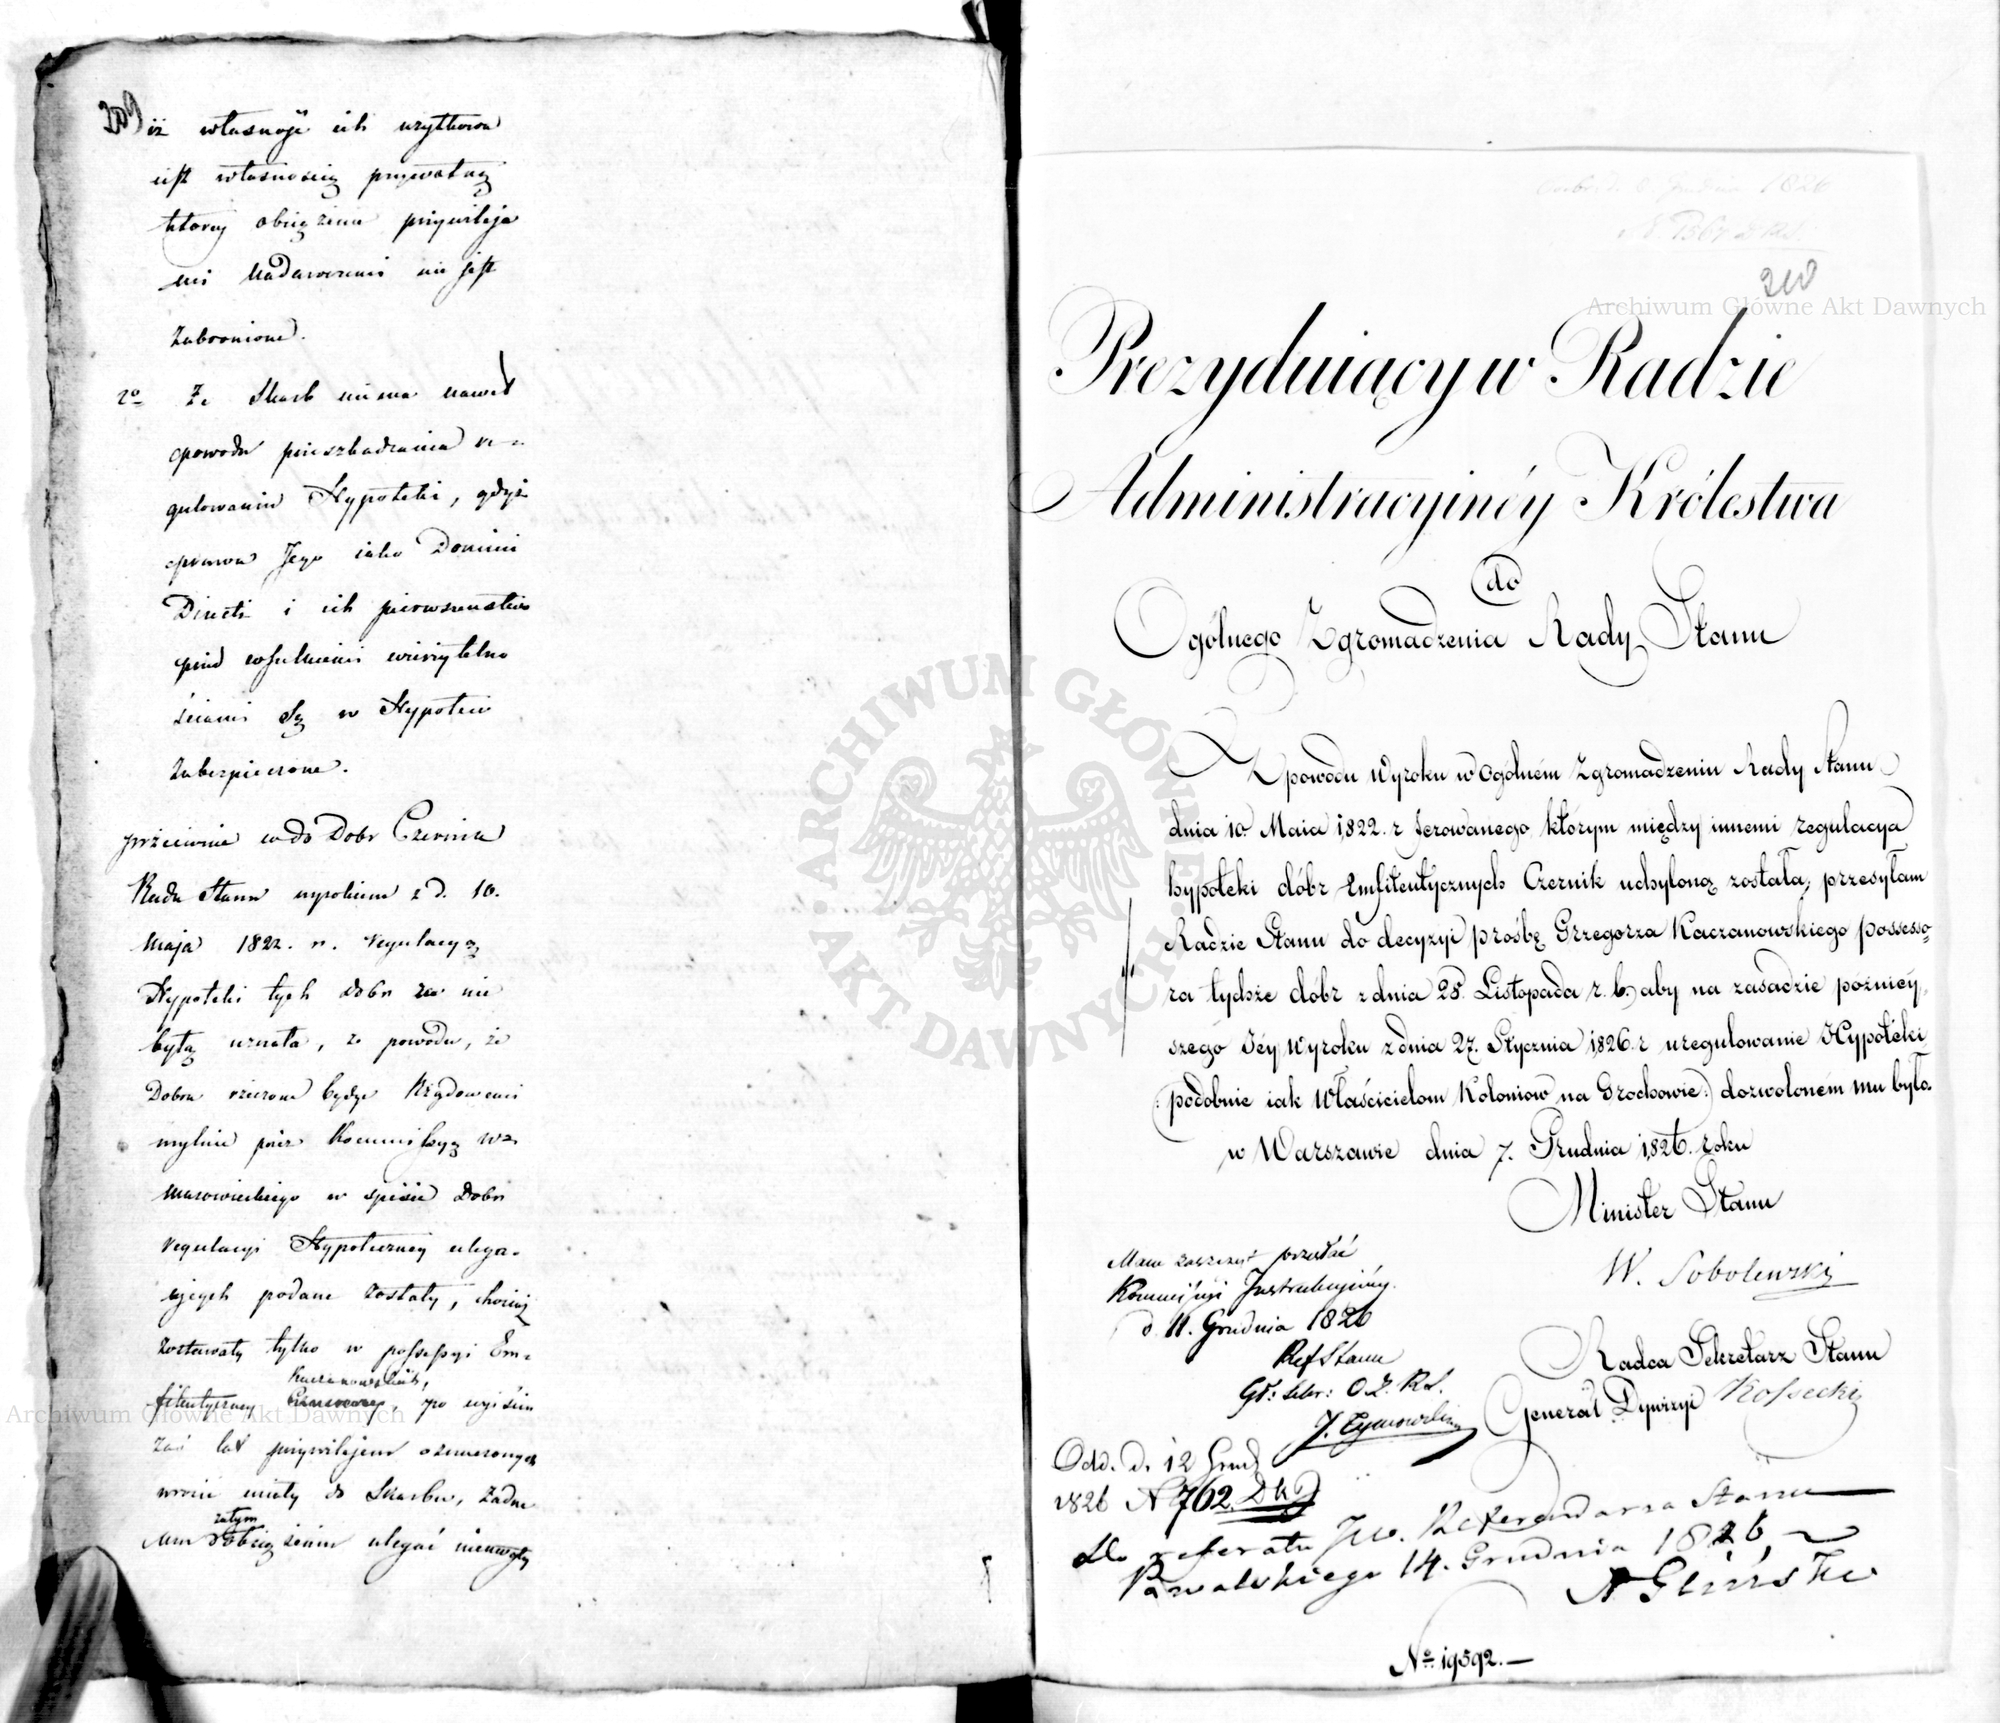 209
iż własność ich użytkowa
iest własnością prywatną
którey obciążenie przywileja
mi nadawczemi nie jest
zabronione.
2o Ze Skarb niema nawet
powodu przeszkadzania re-
gulowaniu Hypoteki, gdyż
prawa Jego iako Domini
Directi i ich pierwszeństwo
przed wszelkiemi wierzytelno
ściami są w Hypotece
zabezpieczone.
przeciwnie co do Dobr Czernik
Rada Stanu wyrokiem z d. 10.
Maja 1822. r. regulacyą
Hypoteki tych dobr za nie
byłą uznała, z powodu, że
Dobra rzeczone będąc Rządowemi
mylnie przez Kommissyą Wdz
Mazowieckiego w spisie Dobr
regulacyi Hypoteczney ulega-
jących podane zostały, chociaż
zostawały tylko w possessyi Em-
Kaczanowskich,
fiteutyczney, po wyiściu
zaś lat przywilejem oznaczonych
wrócić miały do Skarbu, żadne
zatym
mu obciążeniu ulegać niemogły
210
Prezyduiący w Radzie
Administracyinéy Królestwa
do
Ogólnego Zgromadzenia Rady Stanu
Z powodu Wyroku w Ogólném Zgromadzeniu Rady Stanu
dnia 10 Maia 1822. r ferowanego, którym między innemi regulacya
hypoteki dóbr Emfiteutycznych Czernik uchyloną została, przesyłam
Radzie Stanu do decyzyi prośbę Grzegorza Kaczanowskiego possesso-
ra tychże dobr z dnia 28. Listopada r. b. aby na zasadzie poźniéy
szego Jéy Wyroku z dnia 27. Stycznia 1826. r uregulowanie Hypoteki
(: podobnie iak Właścicielom Koloniow na Grochowie :) dozwolonem mu było.
w Warszawie dnia 7. Grudnia 1826. roku
Minister Stanu
W. Sobolewski
Mam zaszczyt przesłać
Kommissyi Instrukcyiney.
d. 11. Grudnia 1826
Ref Stanu
Gł: Sekr: O. Z. R. S.
J. Tymowski
Radca Sekretarz Stanu
Generał Dywizyi Kossecki
Odd. D. 12 Grud
1826 N 762
Do referatu JW. Referendarza Stanu
Kowalskiego 14. Grudnia 1826
A Gliński
No 19592.